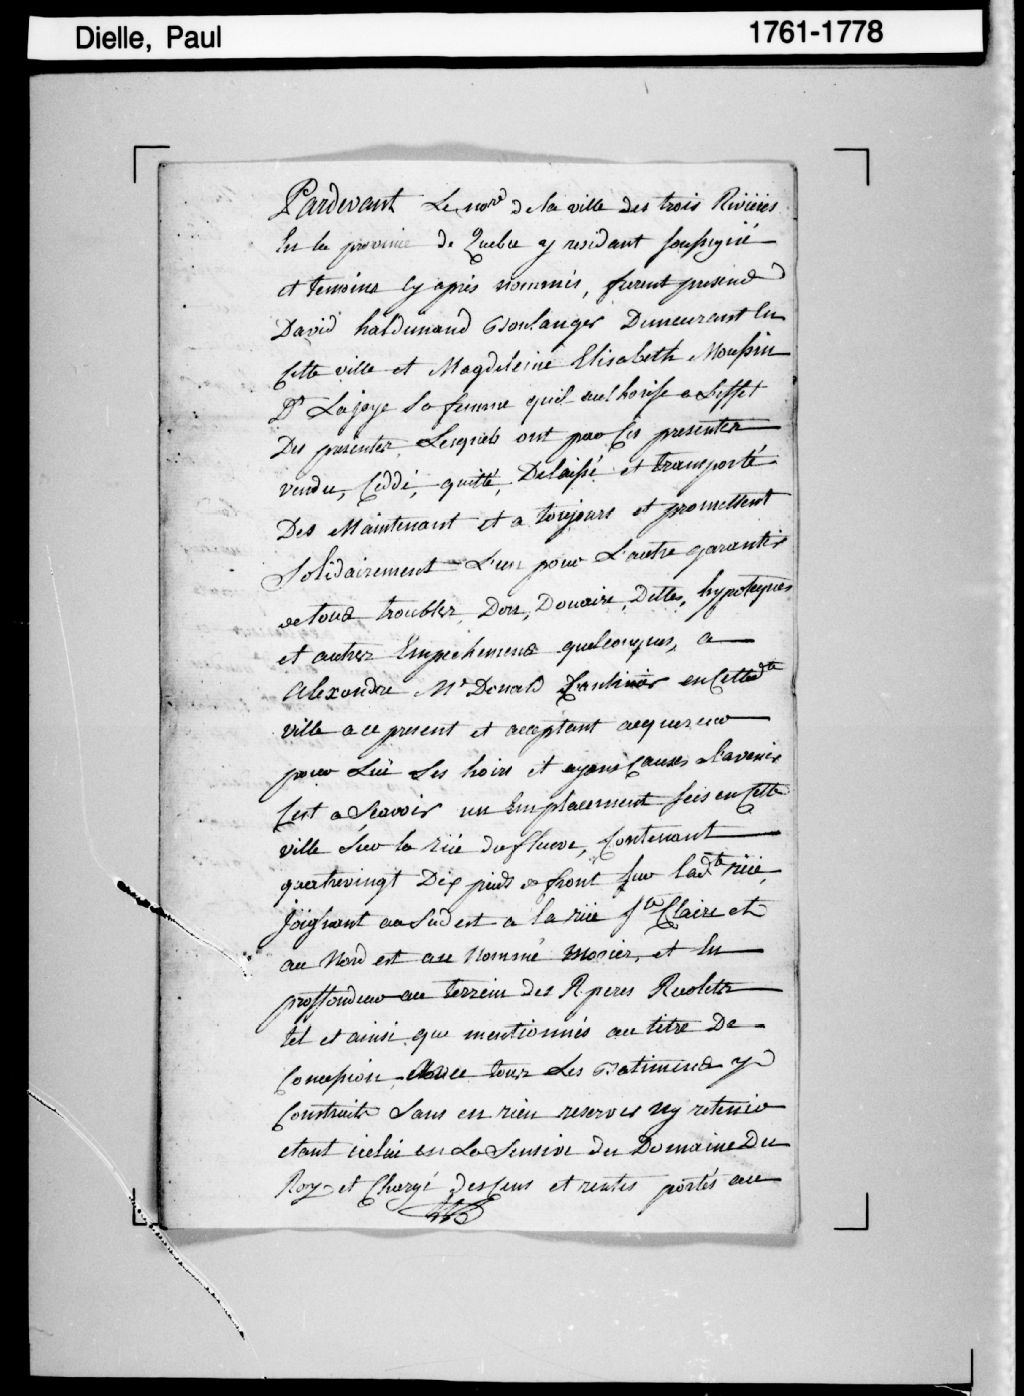 Dielle, Paul
1761-1778
Pardevant Le nore de la ville des trois Rivieres
En la province de Quebec y residant soussigné
et temoins Cy après nommés, furent presens
David haldimand Boulanger Demeurant En
Cette ville et Magdeleine Elisabeth
Dt Lajoye Sa femme quil authorise a Leffet
Des presentes, Lesquels ont par Ces presentes
vendu, Ceddé, quitté, Délaissé et transporté
Des Maintenant et a toujours et promettent
Solidairement L'un pour L'autre garantir
de tous troubles, Don, Douaire, Dettes, hypoteques
et autres Empechemens quelconques, a
Alexandre Mc Donald en Cette dte
ville a ce present et acceptant acquereur
pour Lui Ses hoirs et ayans Causes a L'avenir
Cest a Scavoir un Emplacement scis en Cette
ville Sur la rüe du fleuve, Contenant
quatrevingt Dix pieds de front sur lad.te rüe,
Joignant au Sud est a la rüe Ste Claire et
au Nord est au Nommé, et En
proffondeur au terrein des R. peres Recolets
tel et ainsi que mentionnés au titre De
Concession, Avec tous Les Batimens y
Construits Sans en rien reserver ny retenir
etant icelui en La Sensive du Domaine Du
Roy et Chargé des Cens et rentes portés au